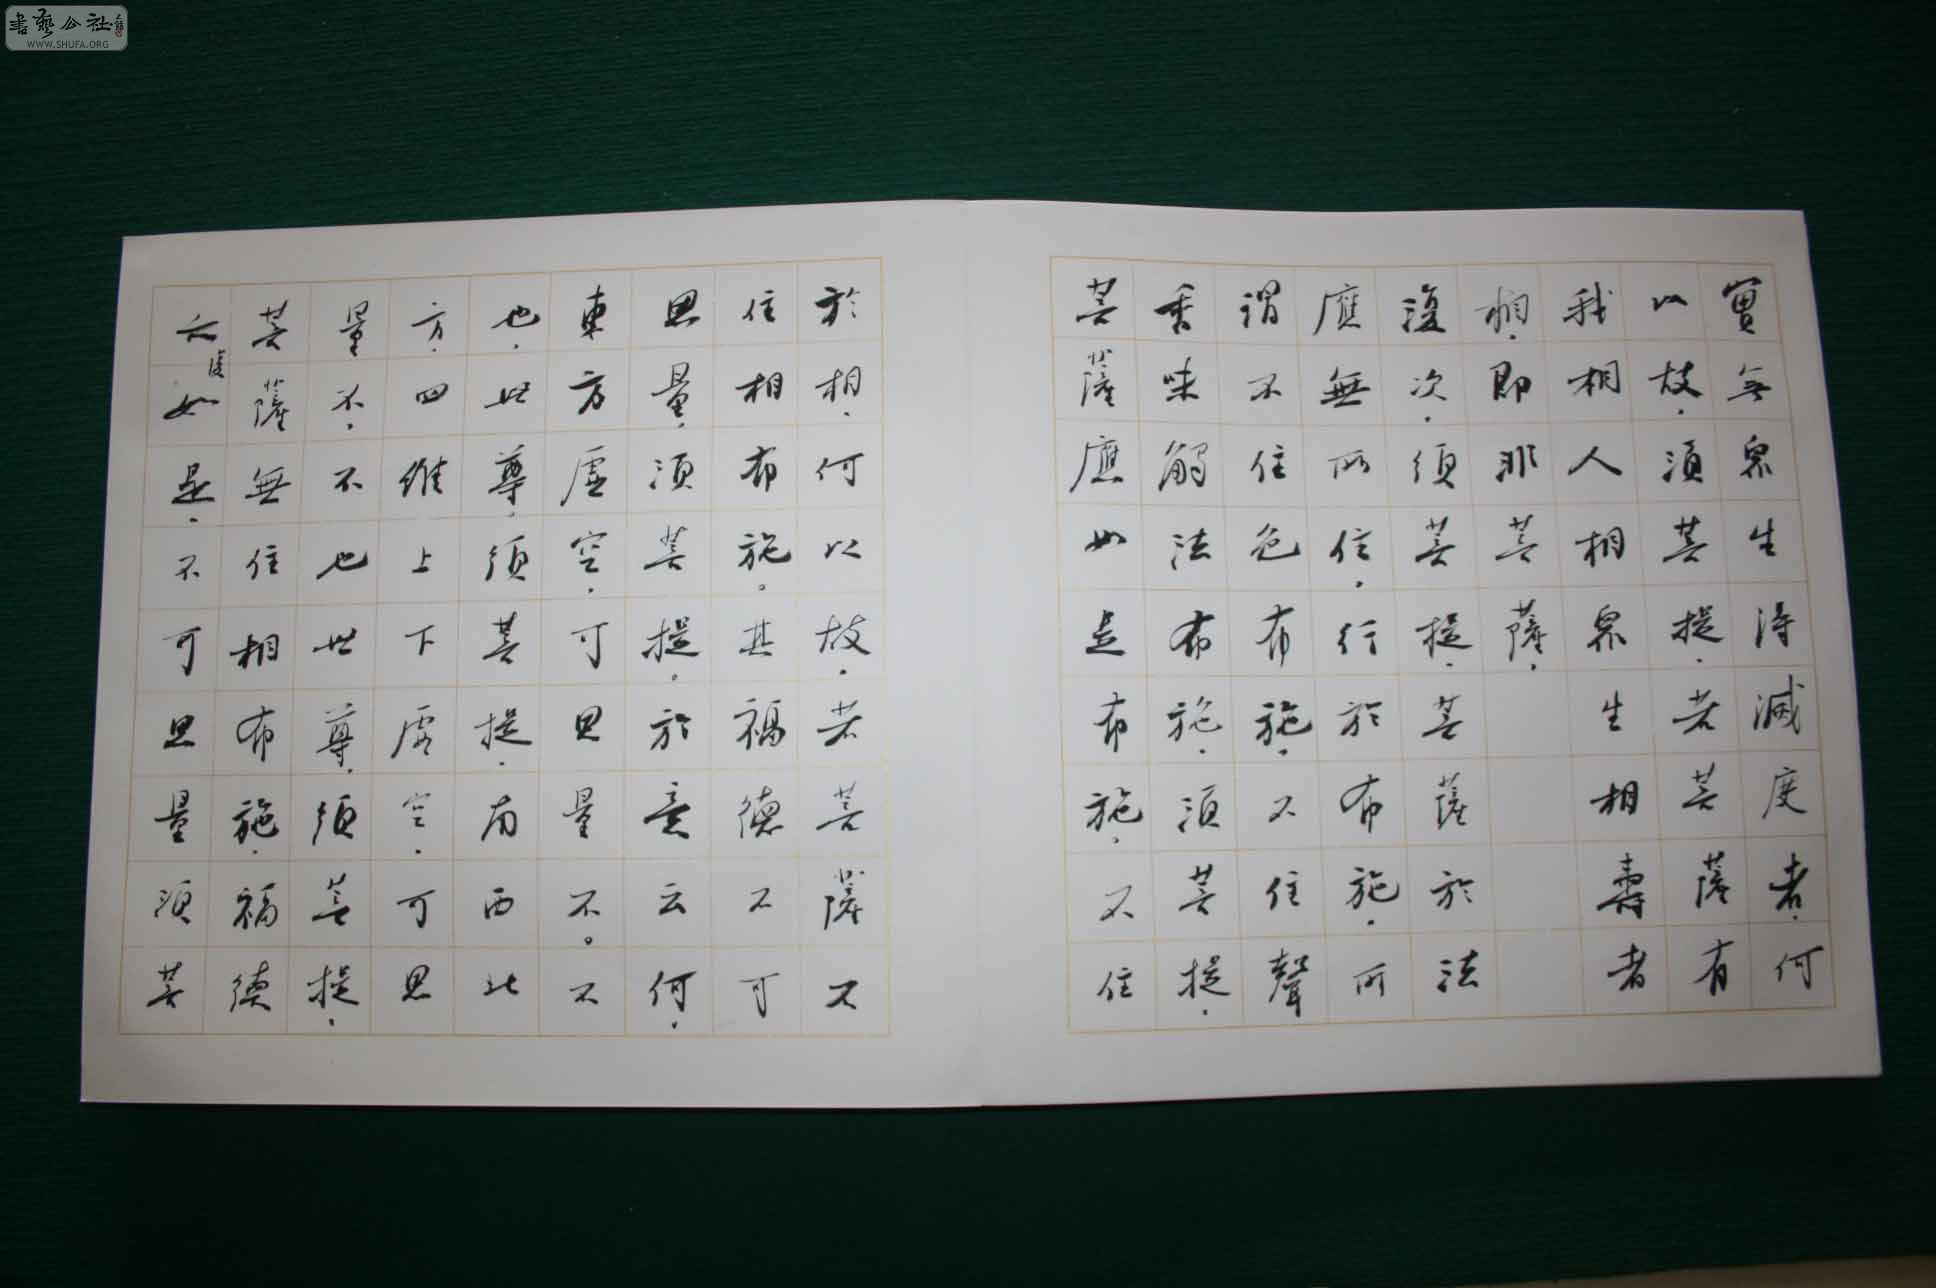 書藝公社
WWW.SHUFA.ORG
實無眾生得滅度者.何
以故.須菩提.若菩薩有
我相人相眾生相壽者
相.即非菩薩.
復次.須菩提.菩薩於法
應無所住.行於布施.所
謂不住色布施.不住聲
香味觸法布施.須菩提.
菩薩應如是布施.不住
於相.何以故.若菩薩不
住相布施。其福德不可
思量.須菩提。於意云何.
東方虛空.可思量不。不
也.世尊.須菩提.南西北
方.四維上下虛空.可思
量不.不也世尊.須菩提.
菩薩無住相布施.福德
亦復如是.不可思量須菩